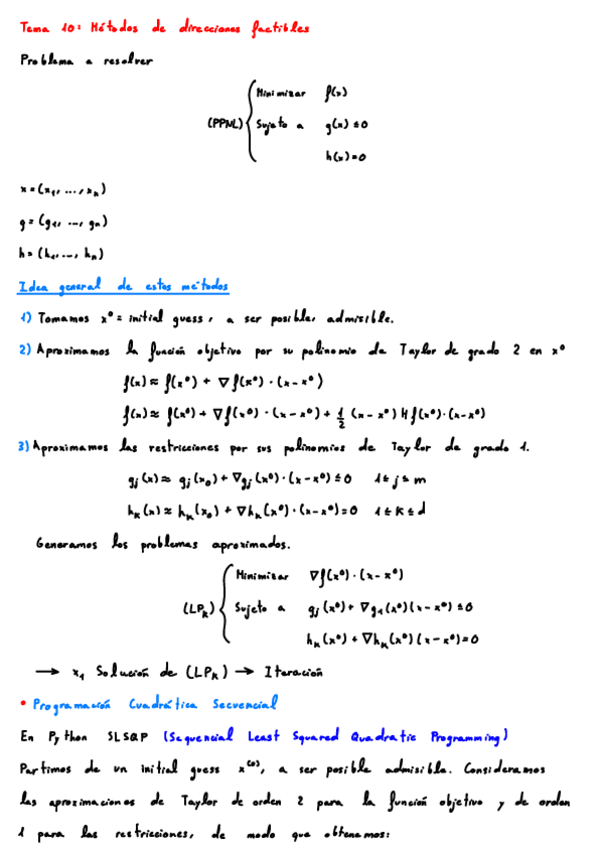 Tema 10: Métodos de direcciones factibles
Problema a resolver
Minimizar f(x)
(PPNL) Sujeto a g(x) ≤ 0
h(x) = 0
x = (x₁, ..., xₙ)
g = (g₁, ..., gₙ)
h = (h₁, ..., hₙ)
Idea general de estos métodos
1) Tomamos x⁰ = initial guess, a ser posible, admisible.
2) Aproximamos la función objetivo por su polinomio de Taylor de grado 2 en x⁰
f(x) ≈ f(x⁰) + ∇f(x⁰) · (x - x⁰)
f(x) ≈ f(x⁰) + ∇f(x⁰) · (x - x⁰) + 1/2 (x - x⁰) Hf(x⁰) · (x - x⁰)
3) Aproximamos las restricciones por sus polinomios de Taylor de grado 1.
gⱼ(x) ≈ gⱼ(x₀) + ∇gⱼ(x⁰) · (x - x⁰) ≤ 0 1 ≤ j ≤ m
hₖ(x) ≈ hₖ(x₀) + ∇hₖ(x⁰) · (x - x⁰) = 0 1 ≤ k ≤ d
Generamos los problemas aproximados.
Minimizar ∇f(x⁰) · (x - x⁰)
(LPₖ) Sujeto a gⱼ(x⁰) + ∇g₁(x⁰)(x - x⁰) ≤ 0
hₖ(x⁰) + ∇hₖ(x⁰)(x - x⁰) = 0
→ x₁ Solución de (LPₖ) → Iteración
• Programación Cuadrática Secuencial
En Python SLSQP (Sequencial Least Squared Quadratic Programming)
Partimos de un initial guess x⁽⁰⁾, a ser posible admisible. Consideramos
las aproximaciones de Taylor de orden 2 para la función objetivo y de orden
1 para las restricciones, de modo que obtenemos: